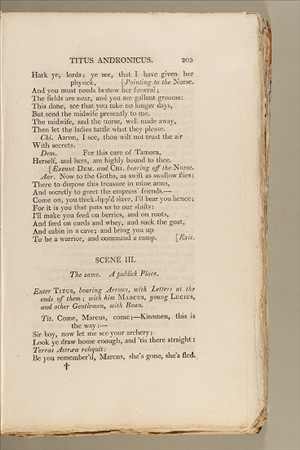 TITUS ANDRONICUS. 205
Hark ye, lords; ye see, that I have given her
physick, [Pointing to the Nurse.
And you must needs bestow her funeral;
The fields are near, and you are gallant grooms:
This done, see that you take no longer days,
But send the midwife presently to me.
The midwife, and the nurse, well made away,
Then let the ladies tattle what they please.
Chi. Aaron, I see, thou wilt not trust the air
With secrets.
Dem. For this care of Tamora,
Herself, and hers, are highly bound to thee.
[Exeunt DEM. and CHI. bearing off the Nurse.
Aar. Now to the Goths, as swift as swallow flies;
There to dispose this treasure in mine arms,
And secretly to greet the empress' friends.—
Come on, you thick-lipp'd slave, I'll bear you hence;
For it is you that puts us to our shifts:
I'll make you feed on berries, and on roots,
And feed on curds and whey, and suck the goat,
And cabin in a cave; and bring you up
To be a warrior, and command a camp. [Exit.
SCENE III.
The same. A publick Place.
Enter TITUS, bearing Arrows, with Letters at the
ends of them; with him MARCUS, young LUCIUS,
and other Gentlemen, with Bows.
Tit. Come, Marcus, come;—Kinsmen, this is
the way:—
Sir boy, now let me see your archery;
Look ye draw home enough, and 'tis there straight:
Terras Astræa reliquit:
Be you remember'd, Marcus, she's gone, she's fled.
†